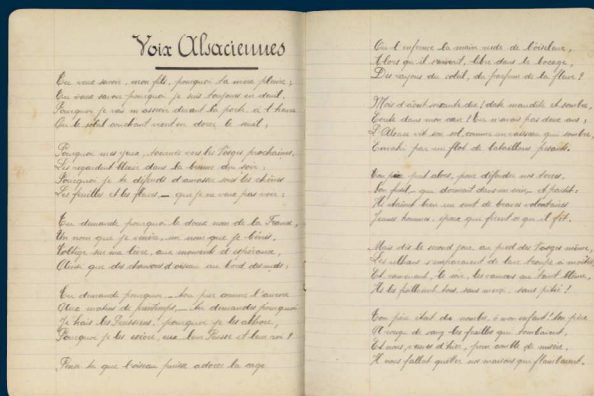 Voix Alsaciennes
Tu veux savoir, mon fils, pourquoi ta mère pleure,
Tu veux savoir pourquoi je suis toujours en deuil,
Pourquoi je vais m'asseoir devant la porte, à l'heure
Où le soleil couchant vient en dorer le seuil,
Pourquoi mes yeux, tournés vers les Vosges prochaines,
Les regardent bleuir dans la brume du soir,
Pourquoi je te défends d'amasser sous les chênes
Les feuilles et les fleurs, — que je ne veux pas voir ;
Tu demandes pourquoi le doux nom de la France,
Un nom que je vénère, un nom que je bénis,
Voltige sur ma lèvre, aux moments d'espérance,
Ainsi que des chansons d'oiseau au bord des nids ;
Tu demandes pourquoi — toi pur comme l'aurore
Aux matins de printemps, — tu demandes pourquoi
Je hais les Prussiens, pourquoi je les abhorre,
Pourquoi je les maudis, eux, leur Prusse et leur roi ?
l'oiseau puisse adorer la cage
Où l'enferme la main rude de l'oiseleur,
Alors qu'il vivait, libre dans le bocage,
Des rayons du soleil, du parfum de la fleur ?
Mois d'août soixante-dix ! date maudite et sombre,
L'Alsace vit son sol, comme un vaisseau qui sombre,
Envahi par un flot de bataillons pesants.
Ton père prit alors, pour défendre nos terres,
Son fusil que dormait dans un coin, et partit ;
Il devint bien un de braves volontaires
Jeunes hommes
Mais dès le second jour au pied des Vosges même,
Les uhlans s'emparaient de leur troupe
Et vainement, le soir, les
Ils les fusillaient tous, sans merci, sans pitié !
Ton père était du nombre, ô mon enfant ! Ton père
A rougi de sang les feuilles qui tombaient,
Et nous, veuves d'hier, pour comble de misère,
Il nous fallut quitter nos maisons qui flambaient.